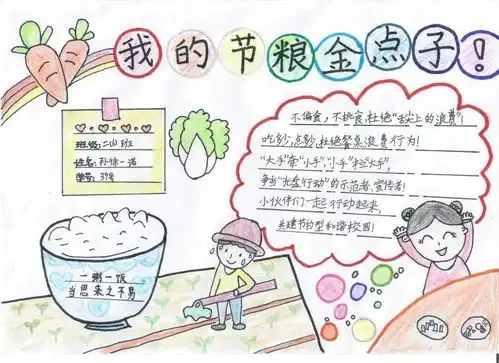 我的节粮金点子！
班级：二(4)班
姓名：孙徐一诺
学号：39号
不偏食，不挑食，杜绝“舌尖上的浪费”！
吃多少，点多少，杜绝餐桌浪费行为！
“大手”牵“小手”，“小手”拉“大手”，
争当“光盘行动”的示范者、宣传者！
小伙伴们一起行动起来，
共建节约型和谐校园！
一粥一饭
当思来之不易